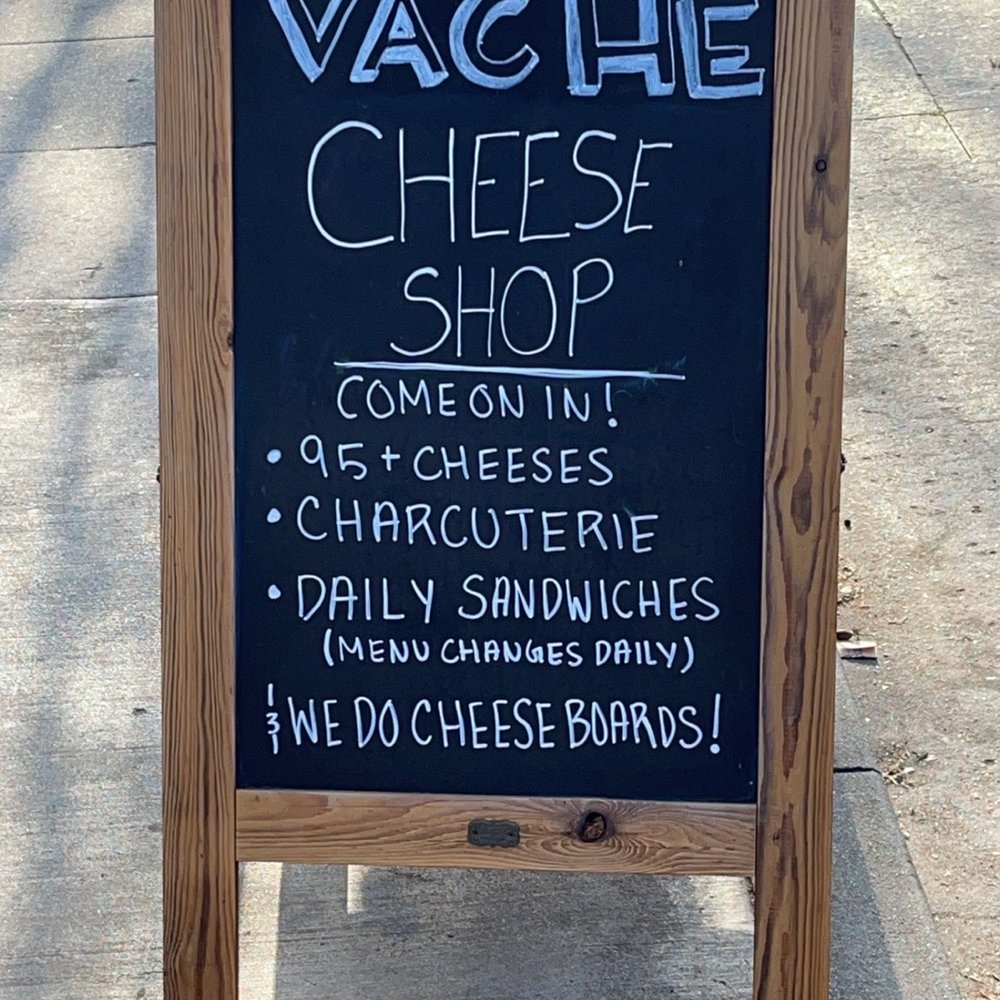 VACHE
CHEESE
SHOP
COME ON IN!
• 95+ CHEESES
• CHARCUTERIE
• DAILY SANDWICHES
(MENU CHANGES DAILY)
WE DO CHEESE BOARDS!